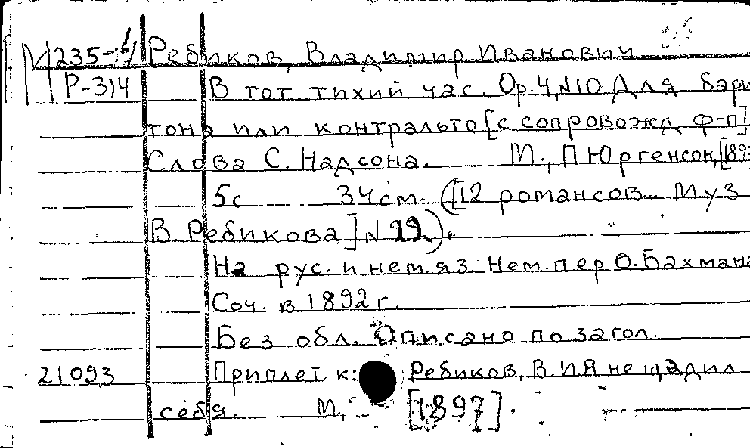 М 235-4 Ребиков, Владимир Иванович
Р-314 В тот тихий час. Op. 4, N10 Для бари
тона или контральто [с сопровожд ф-п]
Слова С. Надсона. М., П Юргенсон, [189
5с 34 см. ([12 романсов. Муз
В. Ребикова] N
На рус. и нем. яз. Нем. пер О. Бахмана
Соч. в 1892 г.
Без обл. Описано по загол.
21093 Приплет к: Ребиков, В. И Я не щадил
себя. М, [1897].